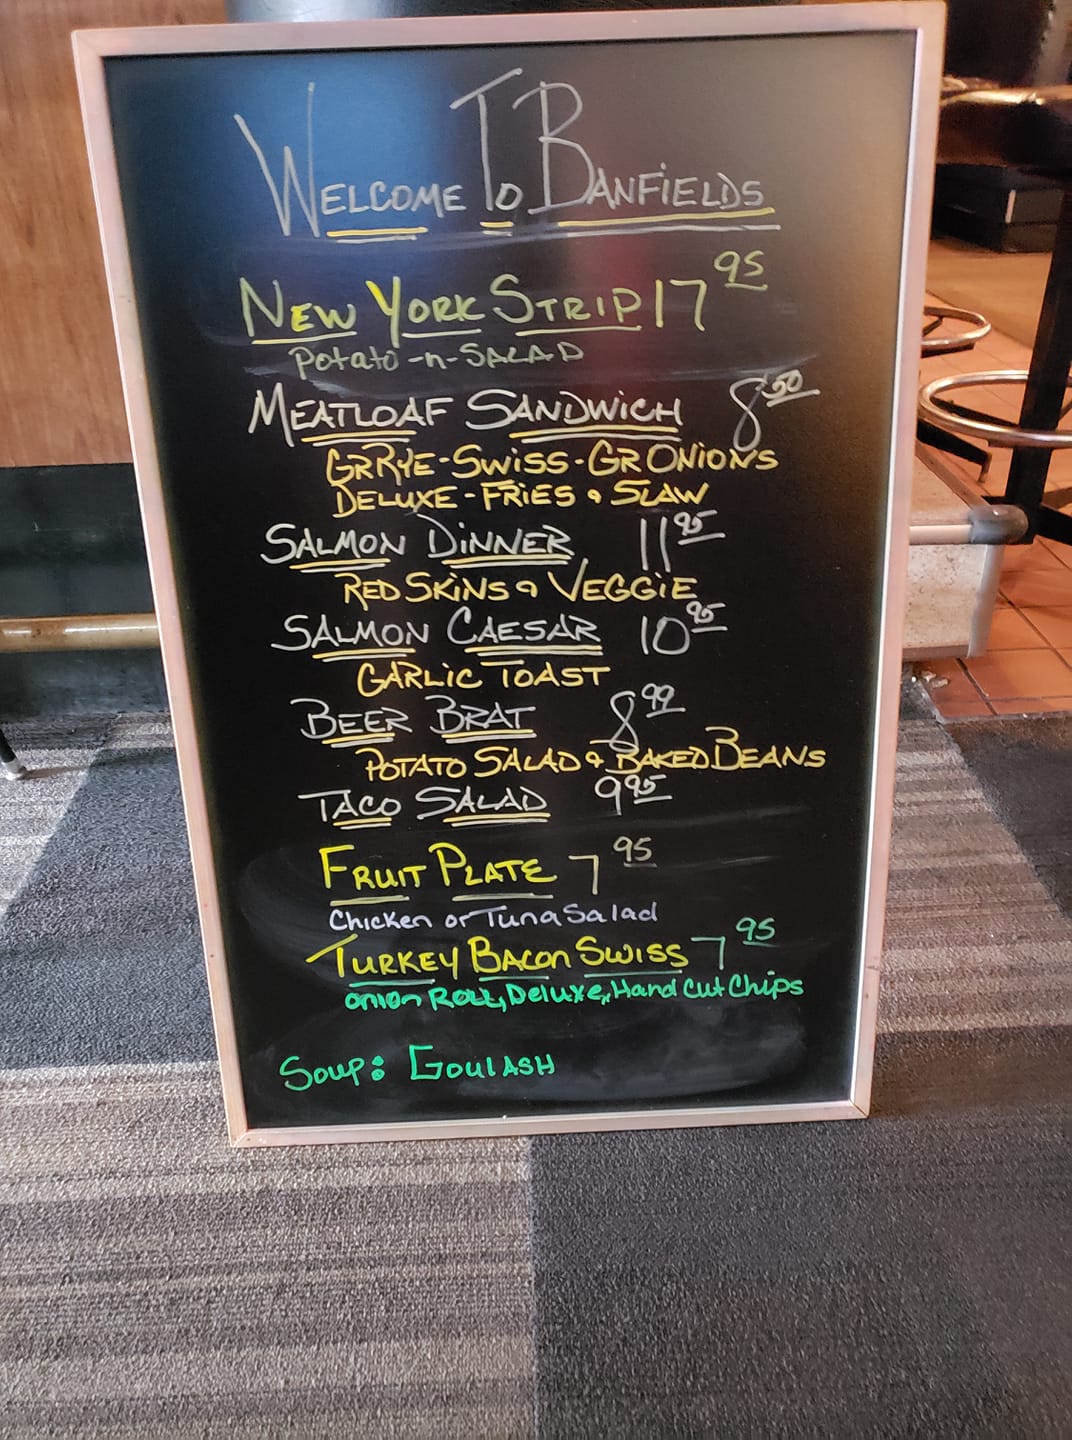 WELCOME TO BANFIELDS
NEW YORK STRIP 17 95
Potato-n-SALAD
MEATLOAF SANDWICH 8 50
GRRYE-SWISS-GRONIONS
DELUXE-FRIES & SLAW
SALMON DINNER 11 95
REDSKINS & VEGGIE
SALMON CAESAR 10 95
GARLIC TOAST
BEER BRAT 8 99
POTATO SALAD & BAKED BEANS
TACO SALAD 9 95
FRUIT PLATE 7 95
Chicken or Tuna Salad
TURKEY BACON SWISS 7 95
onion Roll, Deluxe, Hand Cut Chips
Soup: GOULASH